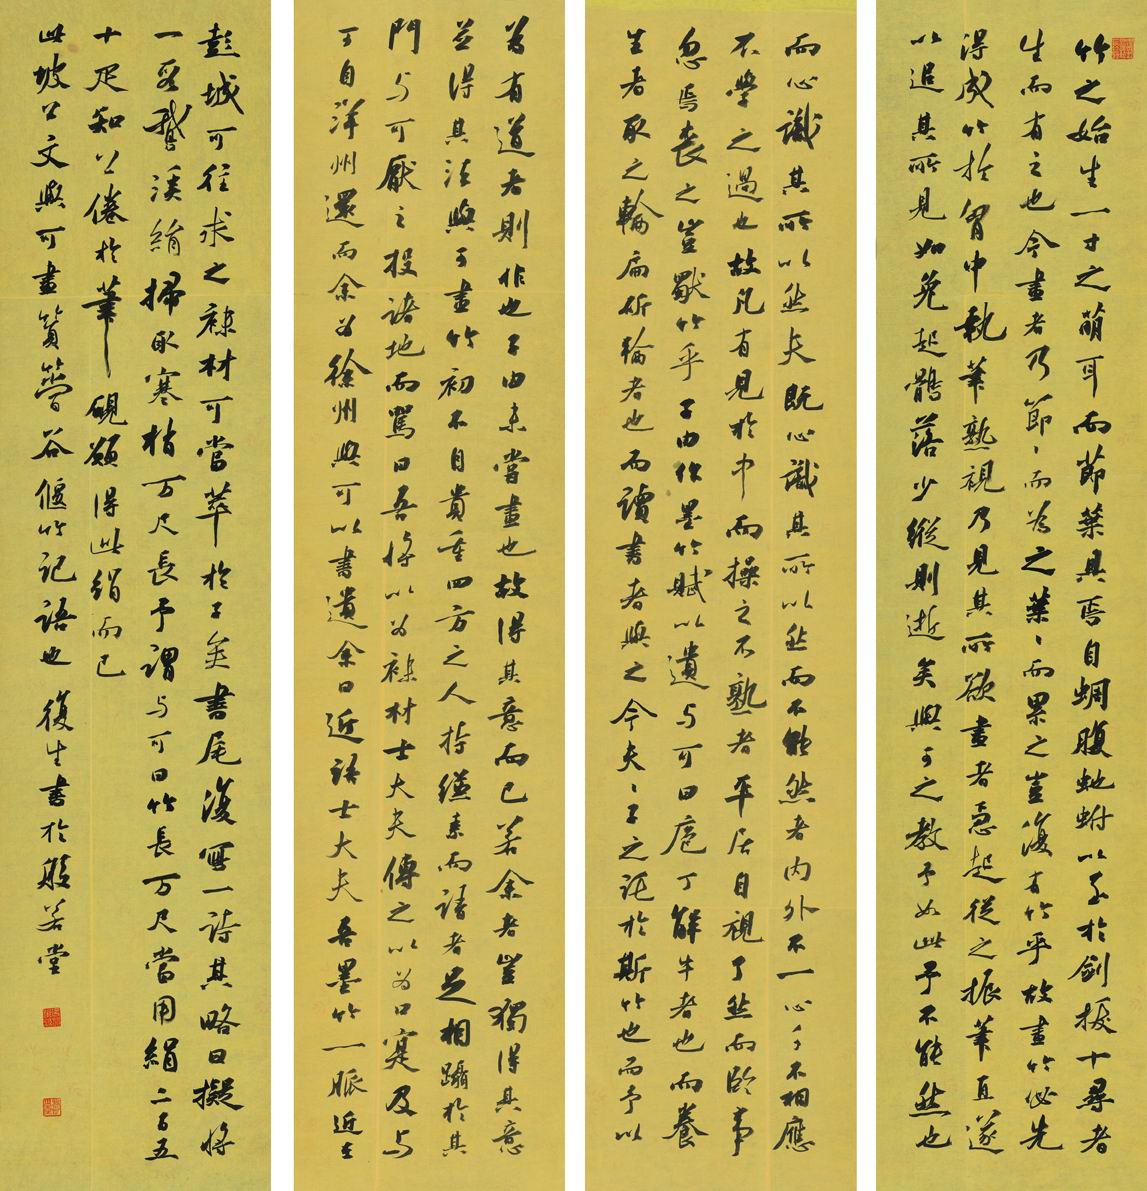 竹之始生一寸之萌耳而節葉具焉自蜩腹蛇蚹以至於劍拔十尋者
生而有之也今畫者乃節〻而為之葉〻而累之豈復有竹乎故畫竹必先
得成竹於胷中執筆熟視乃見其所欲畫者急起從之振筆直遂
以追其所見如兔起鶻落少縱則逝矣與可之教予如此予不能然也
而心識其所以然夫既心識其所以然而不能然者內外不一心手不相應
不學之過也故凡有見於中而操之不熟者平居自視了然而臨事
忽焉喪之豈獨竹乎子由作墨竹賦以遺与可曰庖丁解牛者也而養
生者取之輪扁斫輪者也而讀書者與之今夫〻子之託於斯竹也而予以
為有道者則非也子由未嘗畫也故得其意而已若余者豈獨得其意
並得其法與可畫竹初不自貴重四方之人持縑素而請者足相躡於其
門与可厭之投諸地而罵曰吾將以為襪材士大夫傳之以為口寔及与
可自洋州還而余為徐州與可以書遺余曰近語士大夫吾墨竹一脈近在
彭城可往求之襪材可當萃於子矣書尾復寫一詩其略曰擬將
一段鵝溪絹掃取寒梢万尺長予謂与可曰竹長万尺當用絹二百五
十尺知公倦於筆硯願得此絹而已
此坡公文與可畫篔簹谷偃竹記語也 復生書於般若堂